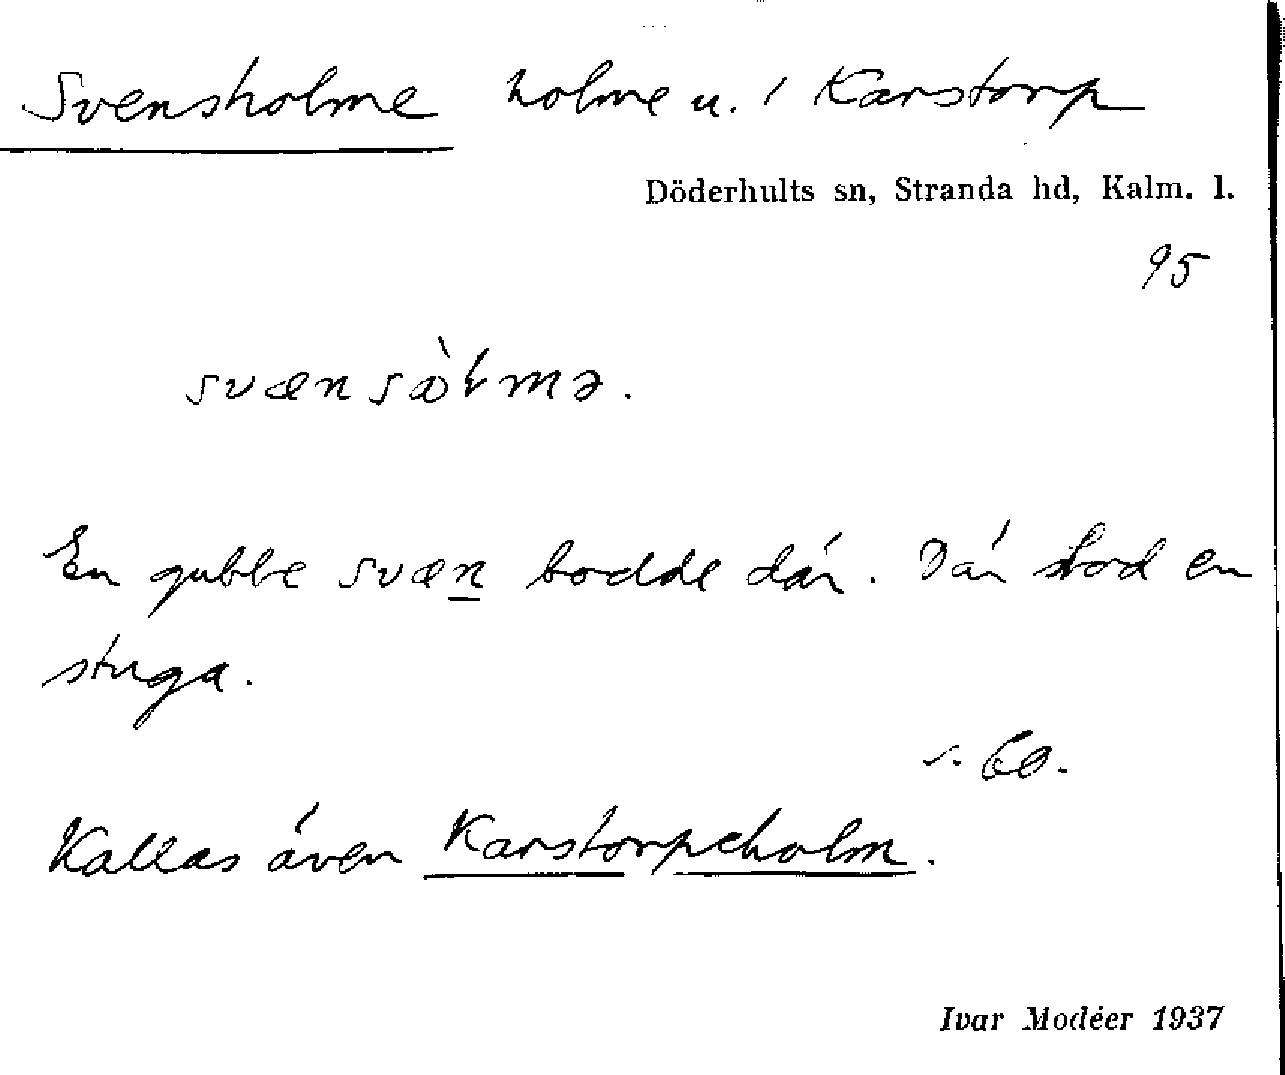 Svensholme holme u. / Karstorp
Döderhults sn, Stranda hd, Kalm. l.
95
svænsòlmə.
En gubbe svæn bodde där. Där stod en
stuga.
s. 60.
Kallas även Karstorpeholm.
Ivar Modéer 1937